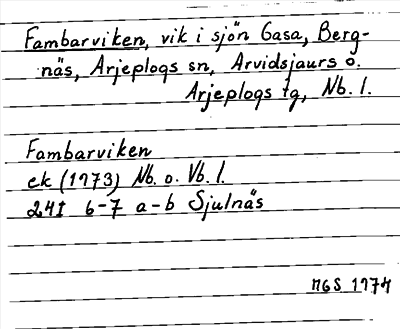 Fambarviken, vik i sjön Gasa, Berg-
näs, Arjeplogs sn, Arvidsjaurs o.
Arjeplogs tg, Nb. l.
Fambarviken
ek (1973) Nb. o. Vb. l.
24I 6-7 a-b Sjulnäs
MGS 1974